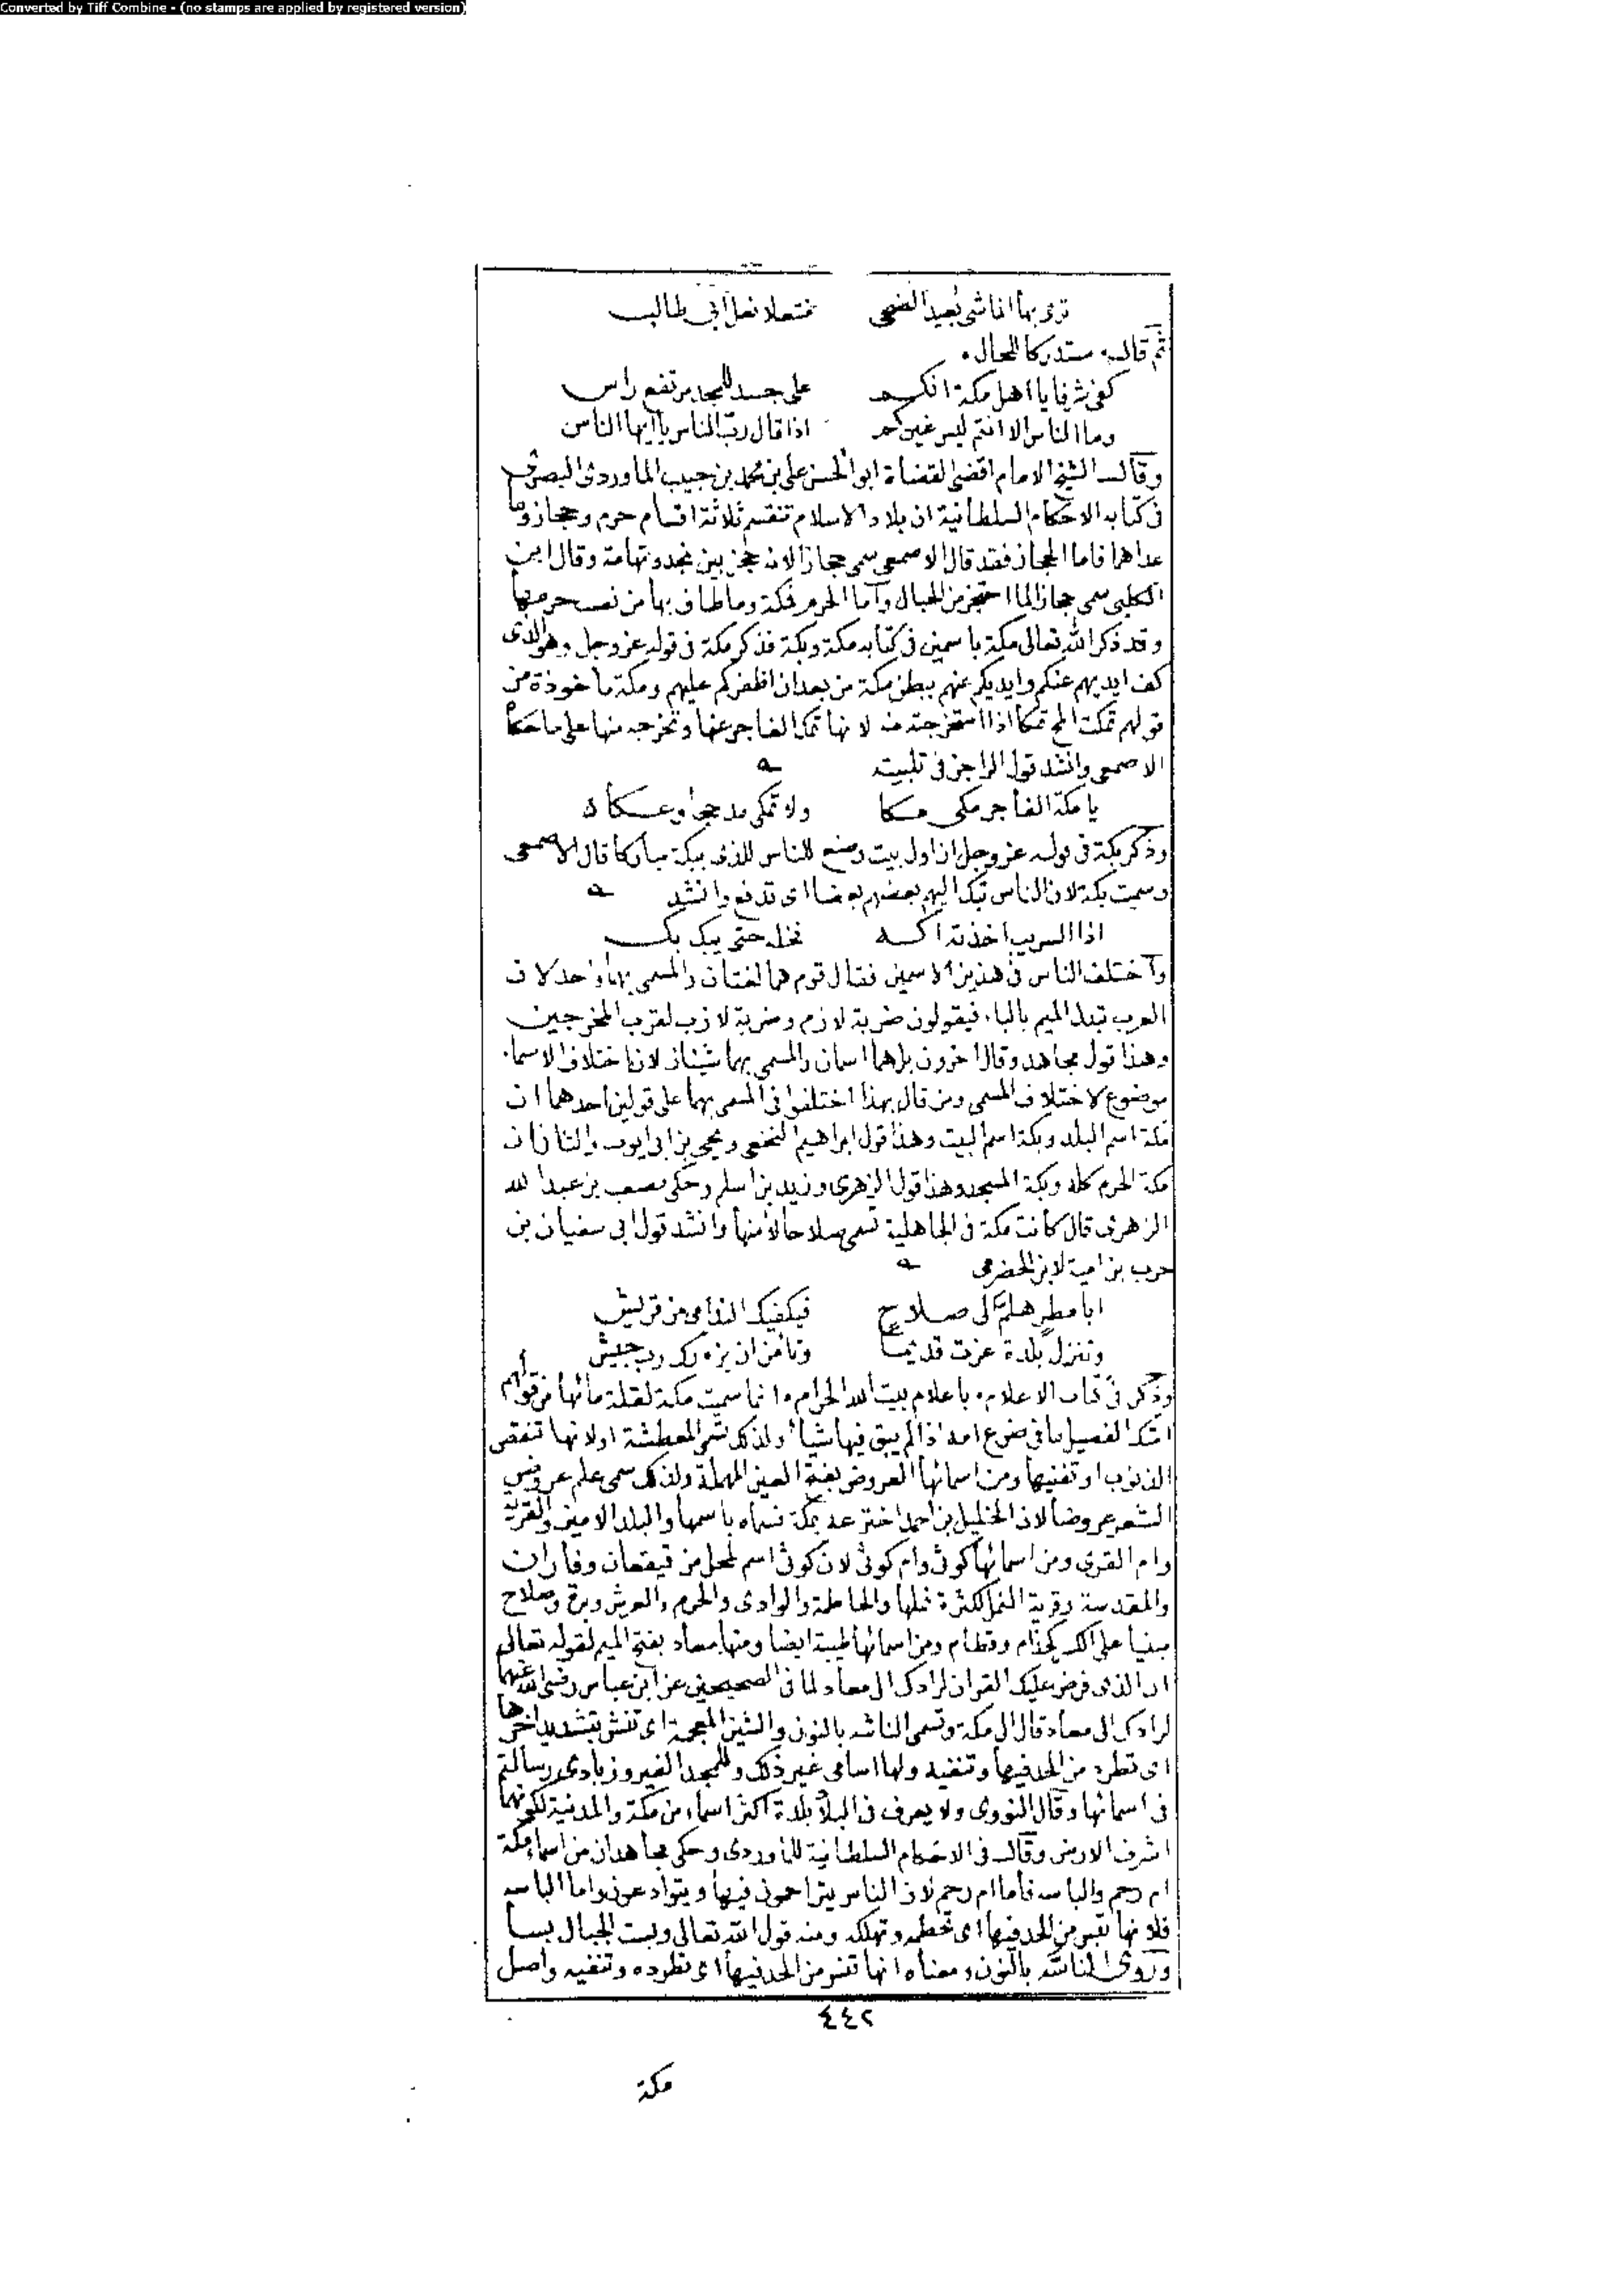 Converted by Tiff Combine - (no stamps are applied by registered version)
ترى بها الماشى بعيد الضحى منتعلا نعل ابى طالب
ثم قال مستدركا للحال
كفى شرفا يا اهل مكة انكم على جسد للمجد مرتفع راس
وما الناس الا انتم ليس غيركم اذا قال رب الناس يا ايها الناس
وقال الشيخ الامام اقضى القضاة ابو الحسن على بن محمد بن حبيب الماوردى البصرى
فى كتابه الاحكام السلطانية ان بلاد الاسلام تنقسم ثلاثة اقسام حرم وحجاز وما
عداهما فاما الحجاز فقد قال الاصمعى سمى حجازا لانه حجز بين نجد وتهامة وقال ابن
الكلبى سمى حجازا لما احتجز من الجبال واما الحرم فمكة وما طاف بها من نصب حرمها
وقد ذكر الله تعالى مكة باسمين فى كتابه مكة وبكة فذكر مكة فى قوله عز وجل وهو الذى
كف ايديهم عنكم وايديكم عنهم ببطن مكة من بعد ان اظفركم عليهم ومكة ماخوذة من
قولهم تمككت المخ تمككا اذا استخرجته منه لانها تمك الفاجر عنها وتخرجه منها على ما حكا
الاصمعى وانشد قول الراجز فى تلبيته
يا مكة الفاجر مكى مكا ولا تمكى مذحجا وعكا
وذكر بكة فى قوله عز وجل ان اول بيت وضع للناس للذى ببكة مباركا قال الاصمعى
وسميت بكة لان الناس تبك اليهم بعضهم بعضا اى تدفع وانشد
اذا الشريب اخذته اكه فخله حتى يبك بكه
واختلف الناس فى هذين الاسمين فقال قوم هما لغتان والمسمى بهما واحد لان
العرب تبدل الميم بالباء فيقولون ضربة لازم وضربة لازب لقرب المخرجين
وهذا قول مجاهد وقال اخرون بل هما اسمان والمسمى بهما شيئان لان اختلاف الاسماء
موضوع لاختلاف المسمى ومن قال بهذا اختلفوا فى المسمى بهما على قولين احدهما ان
مكة اسم البلد وبكة اسم البيت وهذا قول ابراهيم النخعى ويحيى بن ابى ايوب والثانى ان
مكة الحرم كله وبكة المسجد وهذا قول الزهرى وزيد بن اسلم وحكى مصعب بن عبد الله
الزهرى قال كانت مكة فى الجاهلية تسمى صلاحا لامنها وانشد قول ابى سفيان بن
حرب بن امية لابن الحضرمى
ابا مطر هلم الى صلاح فيكفيك الندامى من قريش
وتنزل بلدة عزت قديما وتامن ان يزورك رب جيش
وذكر فى كتاب الاعلام باعلام بيت الله الحرام وانما سميت مكة لقلة مائها من قولهم
امتك الفصيل ما فى ضرع امه اذا لم يبق فيها شيئا ولذلك تسمى المعطشة او لانها تنقص
الذنوب او تفنيها ومن اسمائها العروض بفتح العين المهملة ولذلك سمى علم عروض
الشعر عروضا لان الخليل بن احمد اخترعه بمكة فسماه باسمها والبلد الامين والقرية
وام القرى ومن اسمائها كوثى وام كوثى لان كوثى اسم لمحل من قيقعان وفاران
والمقدسة وقرية النمل لكثرة نملها والحاطمة والوادى والحرم والعرش وبرة وصلاح
مبنيا على الكسر كحذام وقطام ومن اسمائها طيبة ايضا ومنها معاد بفتح الميم لقوله تعالى
ان الذى فرض عليك القران لرادك الى معاد لما فى الصحيحين عن ابن عباس رضى الله عنهما
لرادك الى معاد قال الى مكة وتسمى الناشة بالنون والشين المعجمة اى تنش بتشديد اخرها
اى تطرد من الحد فيها وتنفيه ولها اسامى غير ذلك وللمجد الفيروزبادى رسالة
فى اسمائها وقال النووى ولا يعرف فى البلاد بلدة اكثر اسماء من مكة والمدينة لكونهما
اشرف الارض وقال فى الاحكام السلطانية للماوردى وحكى مجاهد ان من اسماء مكة
ام رحم والباسه فاما ام رحم لان الناس يتراحمون فيها ويتوادعون واما الباسه
فلانها تبس من الحد فيها اى تحطمه وتهلكه ومنه قول الله تعالى وبست الجبال بسا
وروى الناسه بالنون ومعناه انها تنس من الحد فيها اى تطرده وتنفيه واصل
٤٤٢
مكة